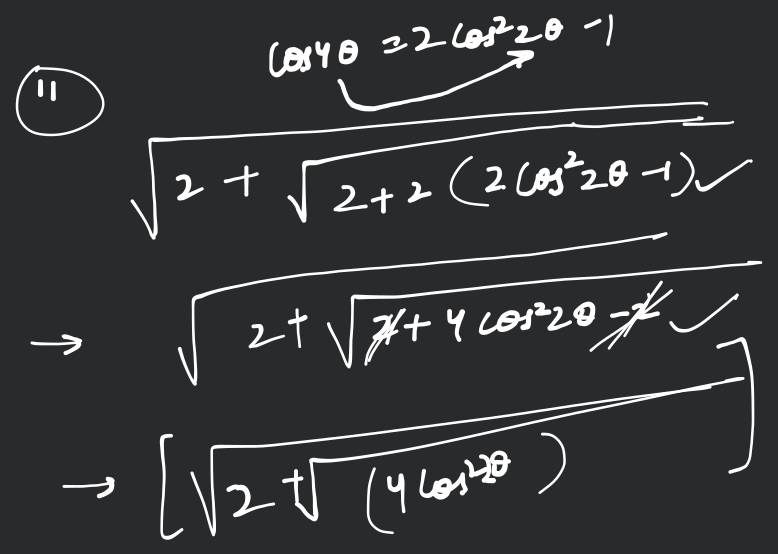 cos4θ = 2cos²2θ - 1
11
√(2 + √(2 + 2(2cos²2θ - 1))) ✓
→ √(2 + √(2 + 4cos²2θ - 2)) ✓
→ [√(2 + √(4cos²2θ))]